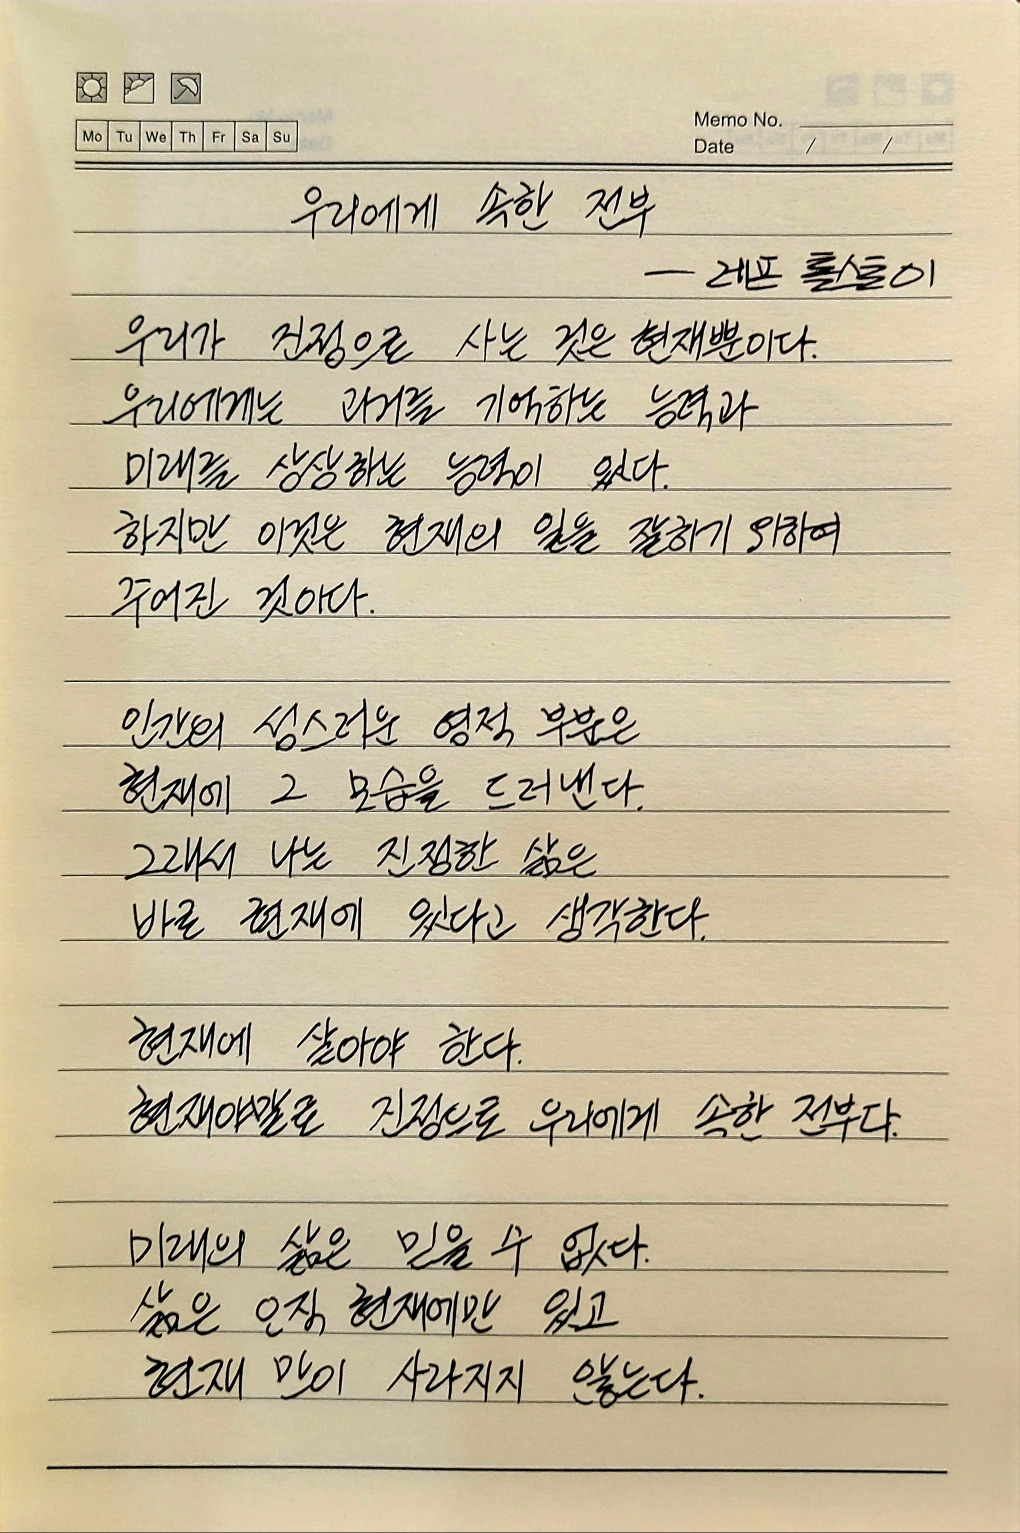 Mo Tu We Th Fr Sa Su
Memo No.
Date / /
우리에게 속한 전부
— 레프 톨스토이
우리가 진정으로 사는 것은 현재뿐이다.
우리에게는 과거를 기억하는 능력과
미래를 상상하는 능력이 있다.
하지만 이것은 현재의 일을 잘하기 위하여
주어진 것이다.
인간의 성스러운 영적 부분은
현재에 그 모습을 드러낸다.
그래서 나는 진정한 삶은
바로 현재에 있다고 생각한다.
현재에 살아야 한다.
현재야말로 진정으로 우리에게 속한 전부다.
미래의 삶은 믿을 수 없다.
삶은 오직 현재에만 있고
현재만이 사라지지 않는다.